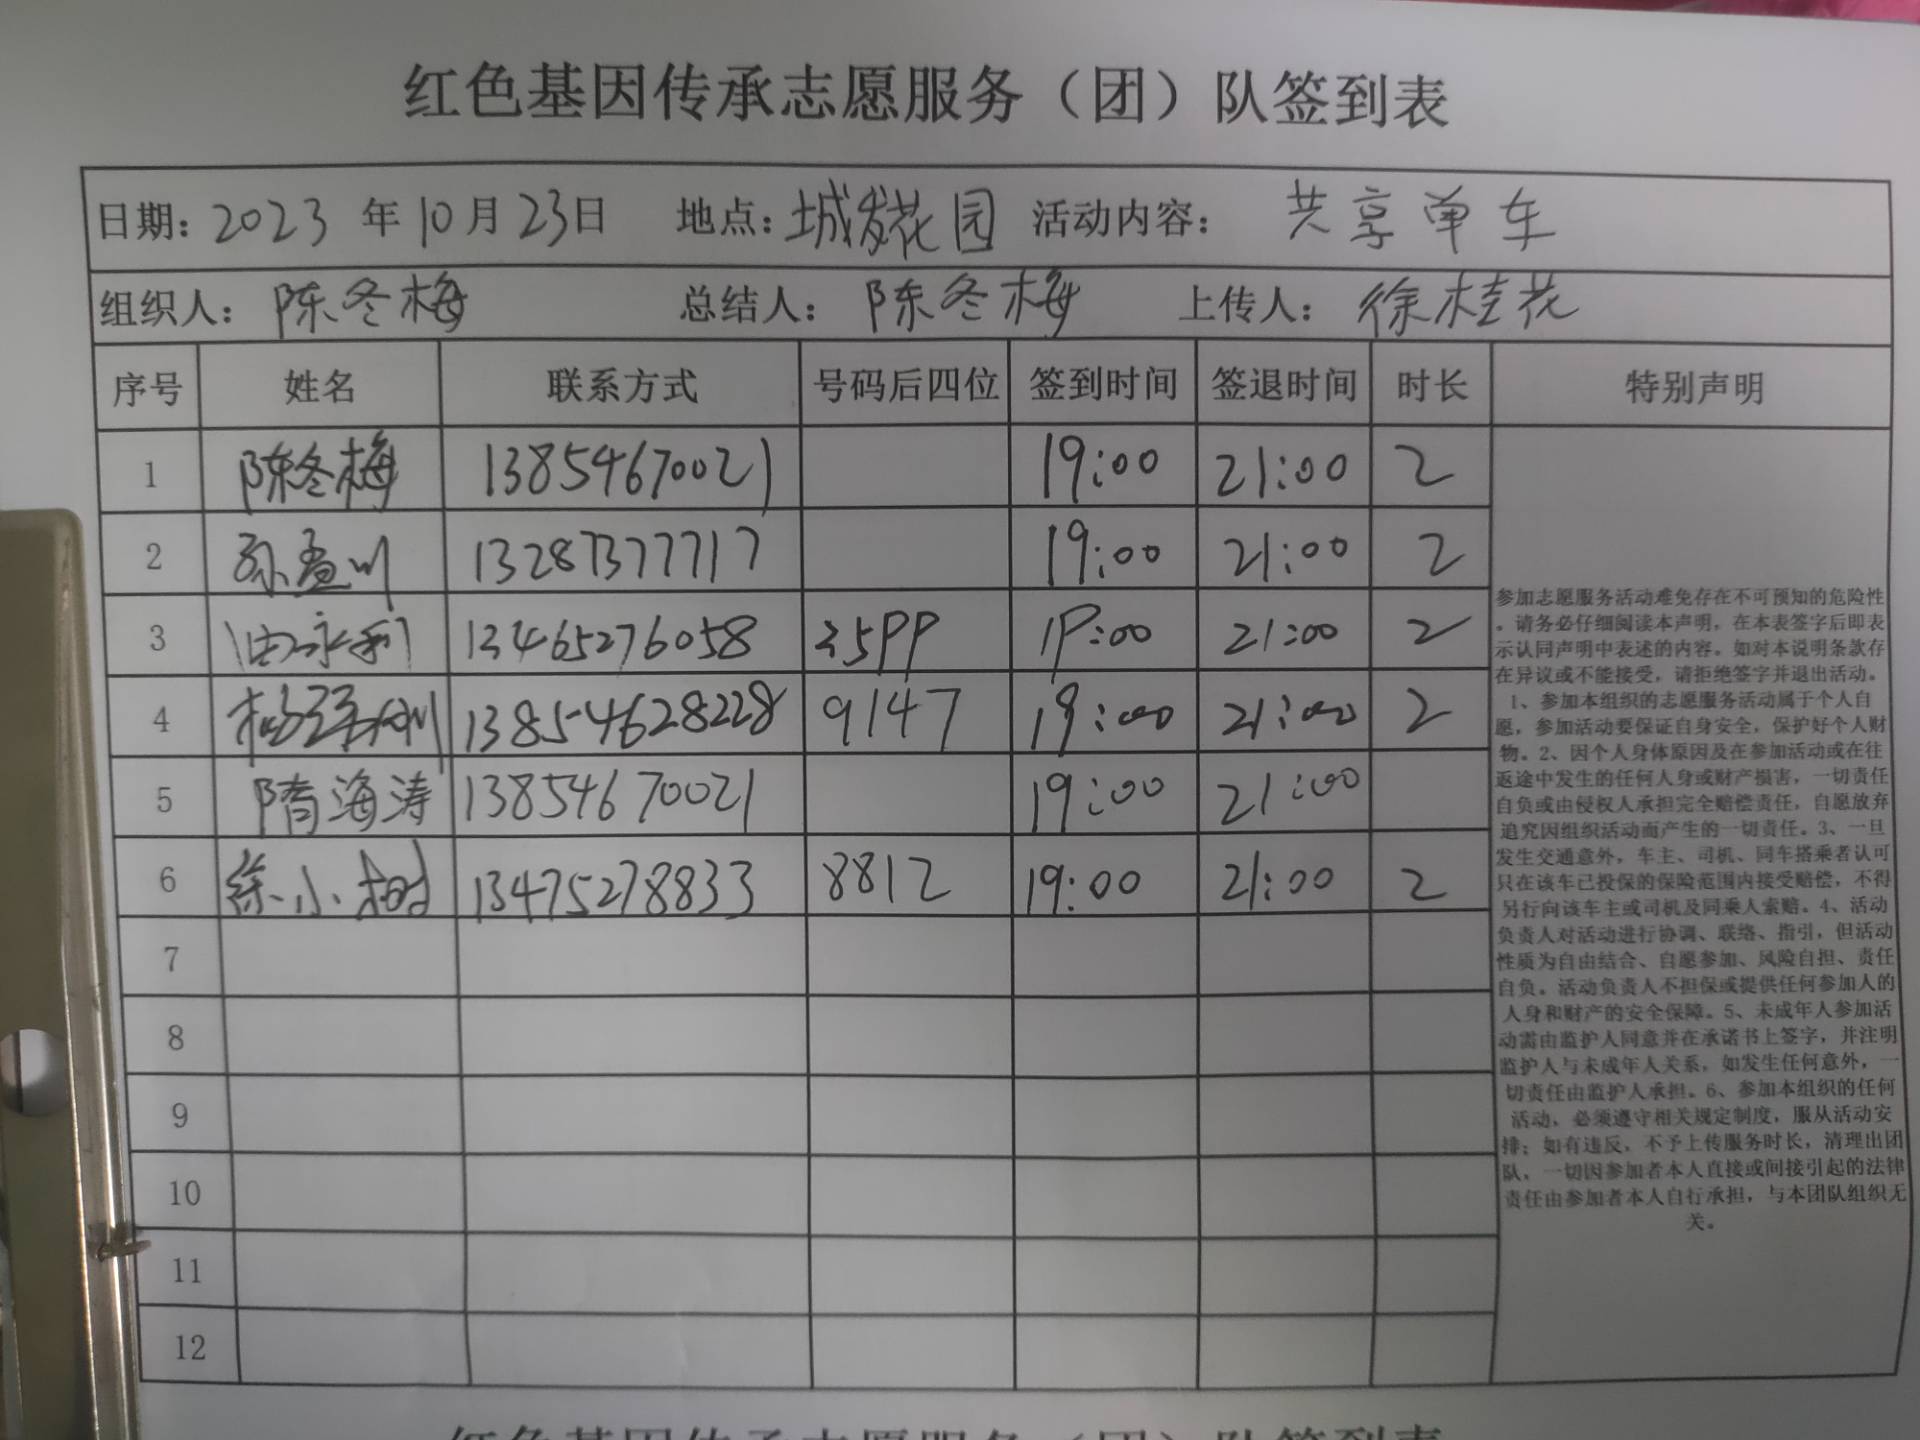 红色基因传承志愿服务（团）队签到表
日期：2023 年 10 月 23 日 地点：城发花园 活动内容： 共享单车
组织人：陈冬梅 总结人：陈冬梅 上传人：徐桂花
序号 姓名 联系方式 号码后四位 签到时间 签退时间 时长 特别声明
1 陈冬梅 13854670021 19:00 21:00 2
2 孙孟川 13287377717 19:00 21:00 2
3 由永利 13465276058 3599 19:00 21:00 2
4 13854628228 9147 19:00 21:00 2
5 隋海涛 13854670021 19:00 21:00
6 徐小树 13475278833 8812 19:00 21:00 2
7
8
9
10
11
12
参加志愿服务活动难免存在不可预知的危险性
。请务必仔细阅读本声明，在本表签字后即表
示认同声明中表述的内容。如对本说明条款存
在异议或不能接受，请拒绝签字并退出活动。
1、参加本组织的志愿服务活动属于个人自
愿，参加活动要保证自身安全，保护好个人财
物。2、因个人身体原因及在参加活动或在往
返途中发生的任何人身或财产损害，一切责任
自负或由侵权人承担完全赔偿责任，自愿放弃
追究因组织活动而产生的一切责任。3、一旦
发生交通意外，车主、司机、同车搭乘者认可
只在该车已投保的保险范围内接受赔偿，不得
另行向该车主或司机及同乘人索赔。4、活动
负责人对活动进行协调、联络、指引，但活动
性质为自由结合、自愿参加、风险自担、责任
自负。活动负责人不担保或提供任何参加人的
人身和财产的安全保障。5、未成年人参加活
动需由监护人同意并在承诺书上签字，并注明
监护人与未成年人关系，如发生任何意外，一
切责任由监护人承担。6、参加本组织的任何
活动，必须遵守相关规定制度，服从活动安
排；如有违反，不予上传服务时长，清理出团
队，一切因参加者本人直接或间接引起的法律
责任由参加者本人自行承担，与本团队组织无
关。
红色基因传承志愿服务（团）队签到表